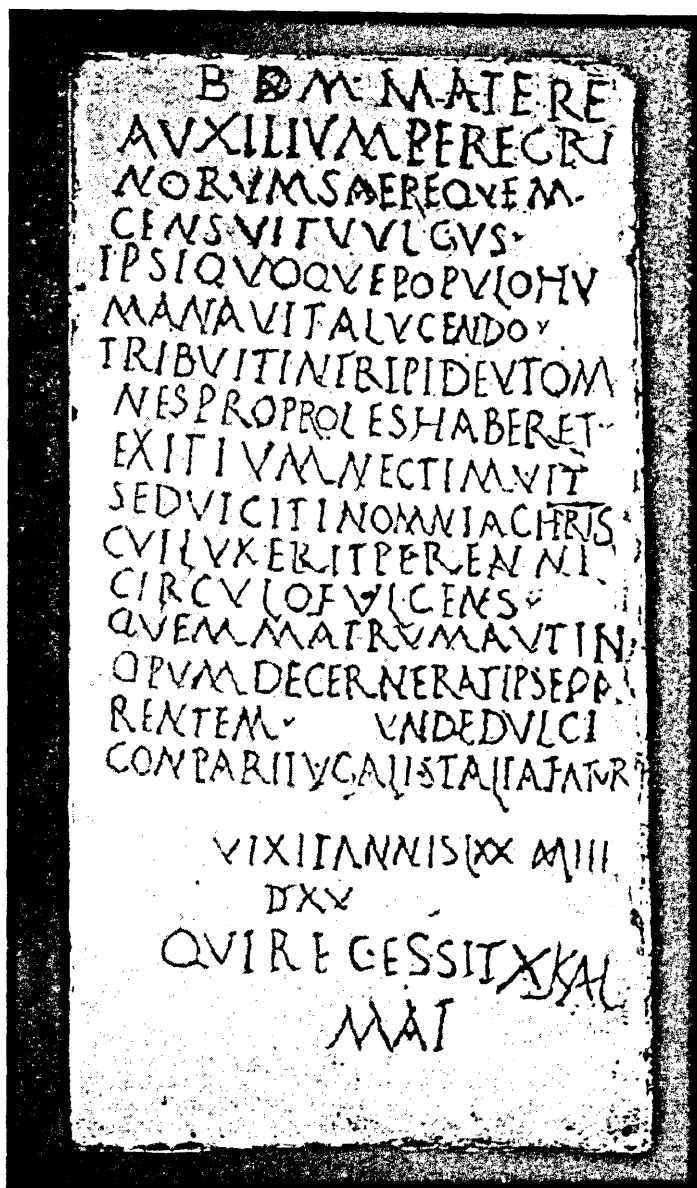 B D M MATERE
AVXILIVMPEREGRI
NORVMSAEREQVEM
CENSVITVVLGVS
IPSIQVOQVEPOPVLOHV
MANAVITALVCENDO
TRIBVITINTRIPIDEVTOM
NESPROPROLESHABERET
EXITIVMNECTIMVIT
SEDVICITINOMNIACHRIS
CVILVXERITPERENNI
CIRCVLOFVLGENS
QVEMMATRVMAVTIN
OPVMDECERNERATIPSEPA
RENTEM VNDEDVLCI
CONPARIIVGALISTALIAFATVR
VIXITANNISLXX MIII
DXV
QVIRECESSITXKAL
MAI